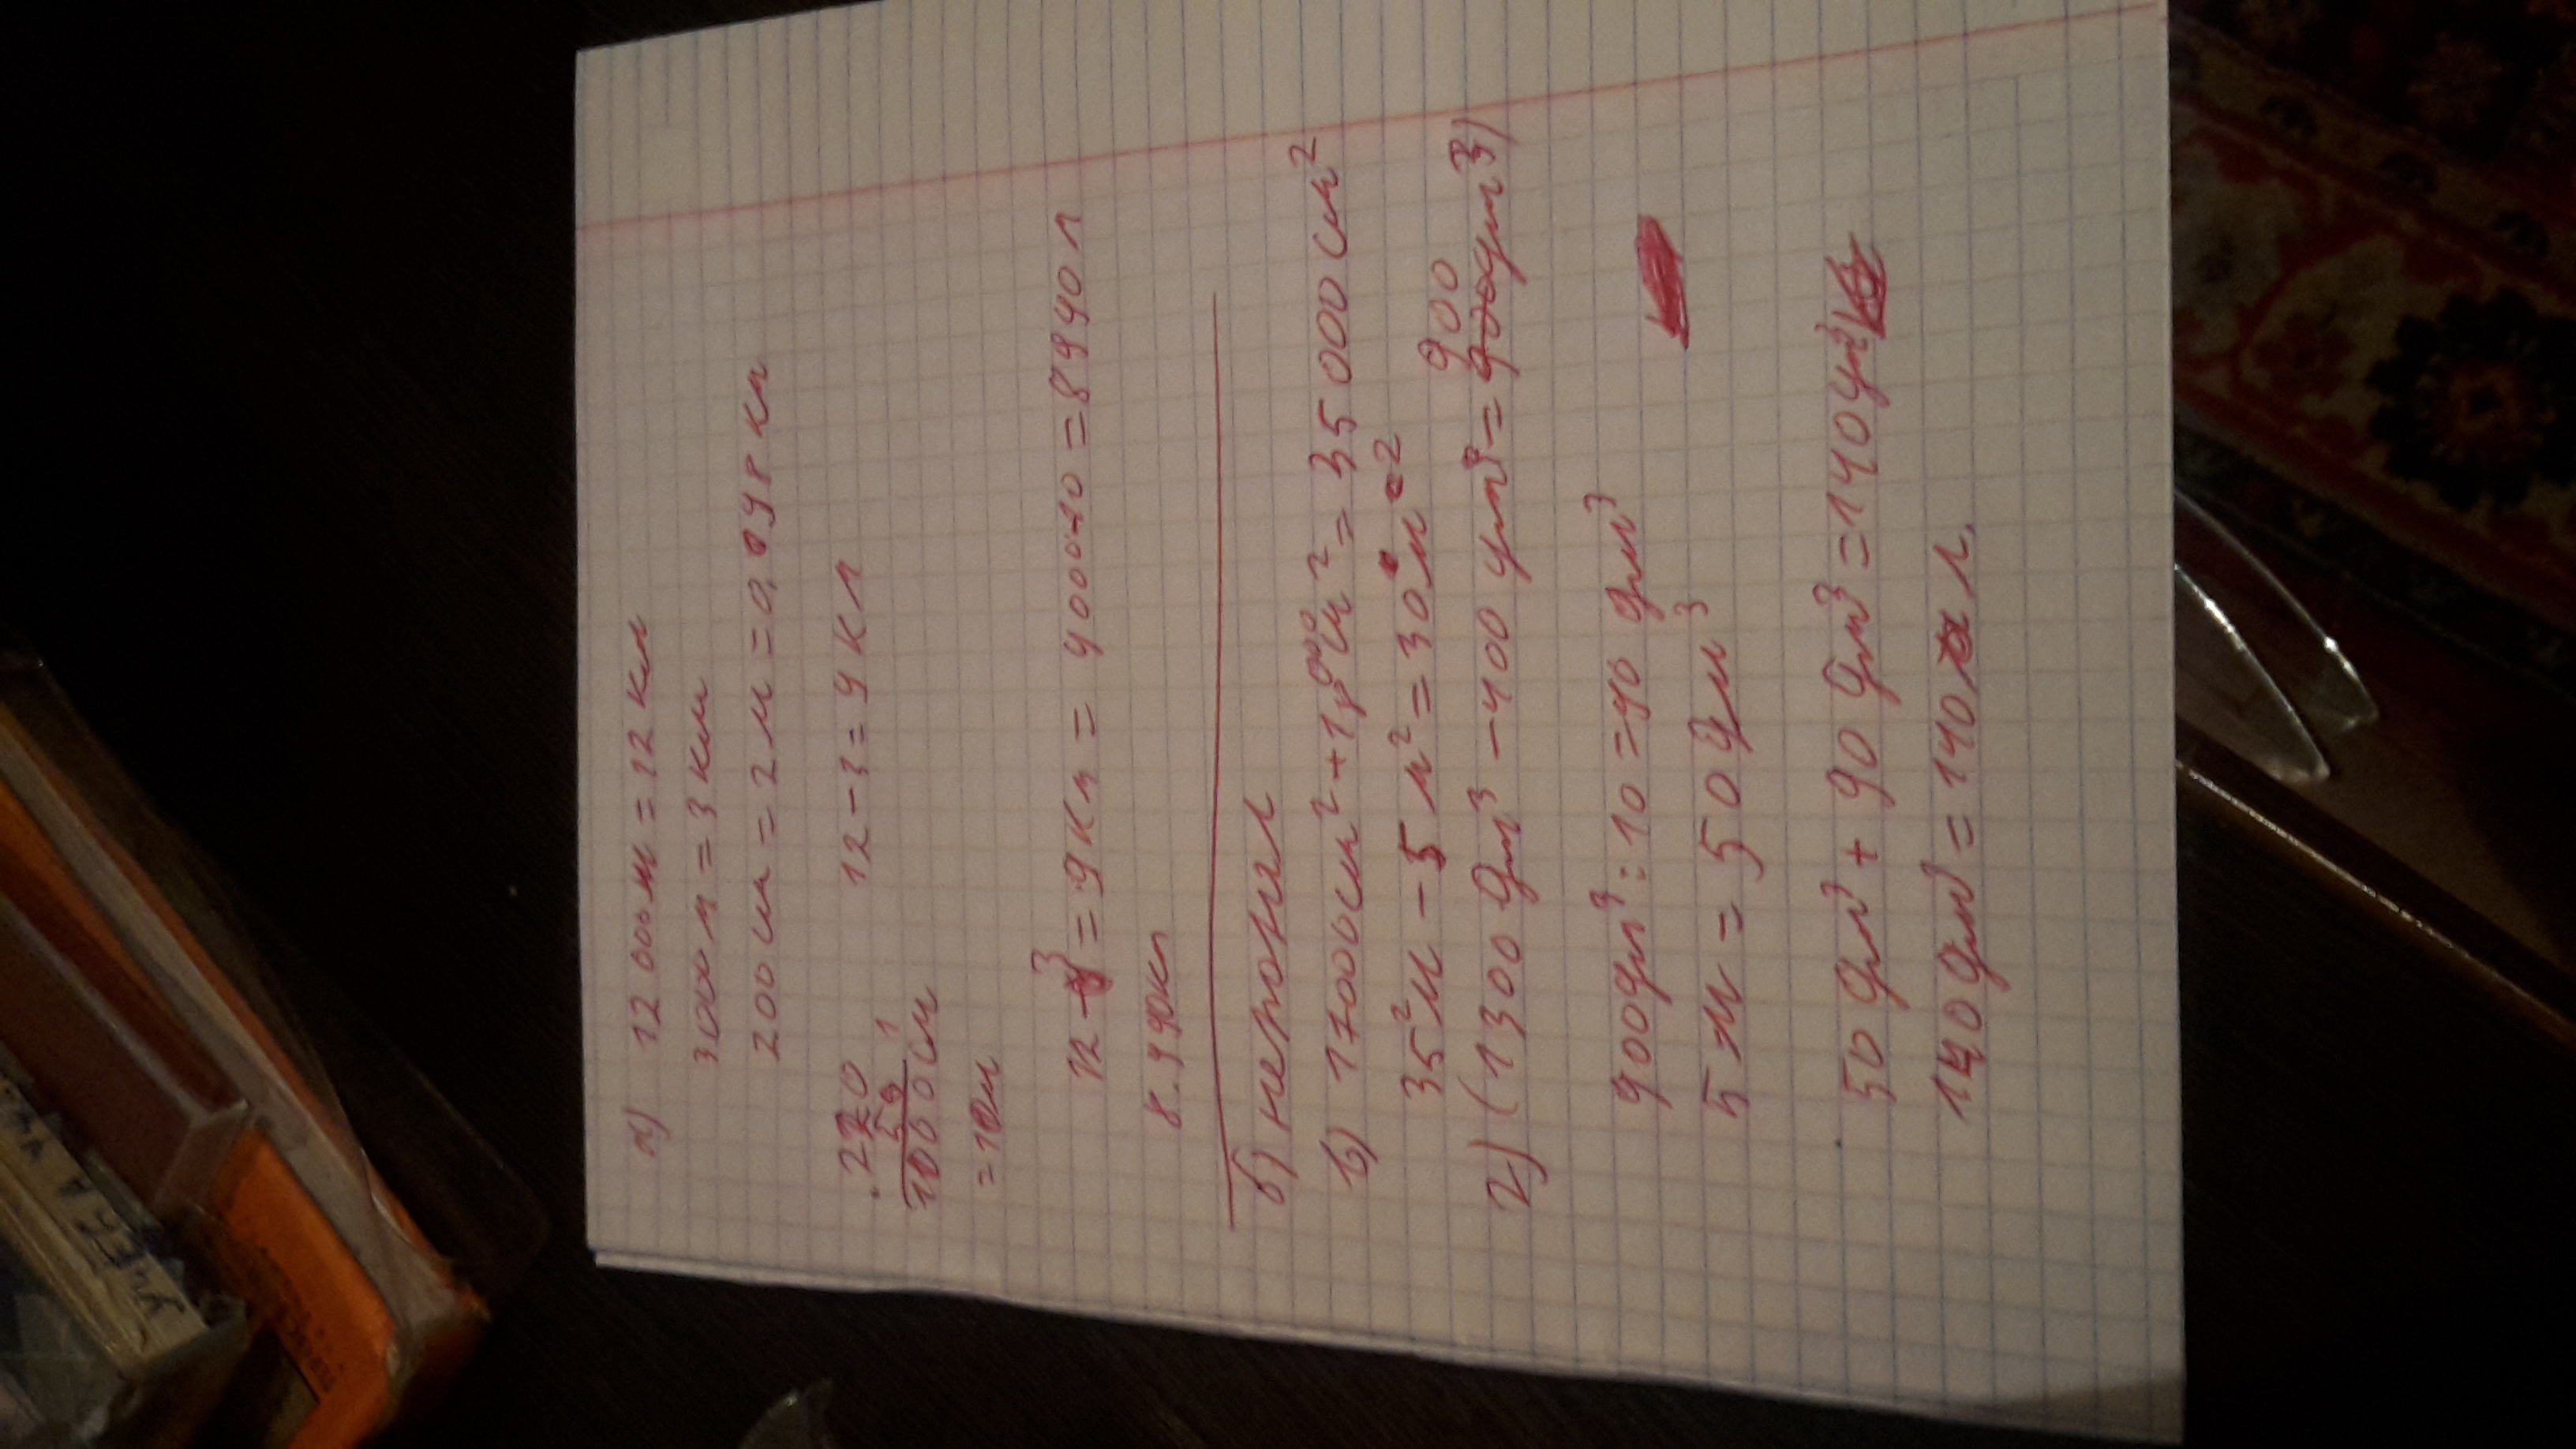 а) 12 000 м = 12 км
3000 м = 3 км
200 см = 2 м = 0,998 км
220
1000 см
= 10 м
12 - 3 = 9 км
12 - 3 = 9 км = 9000-10 = 8990 м
8.990км
б) непонял
в) 17000 см² + 18000 см² = 35 000 см²
35² м - 5 м² = 30 м²
г) (1300 дм³ - 400 дм³ = 900 дм³)
900 дм³ : 10 = 90 дм³
5 м = 50 дм³
50 дм³ + 90 дм³ = 140 дм³
140 дм³ = 140 л.
УЧЕБА